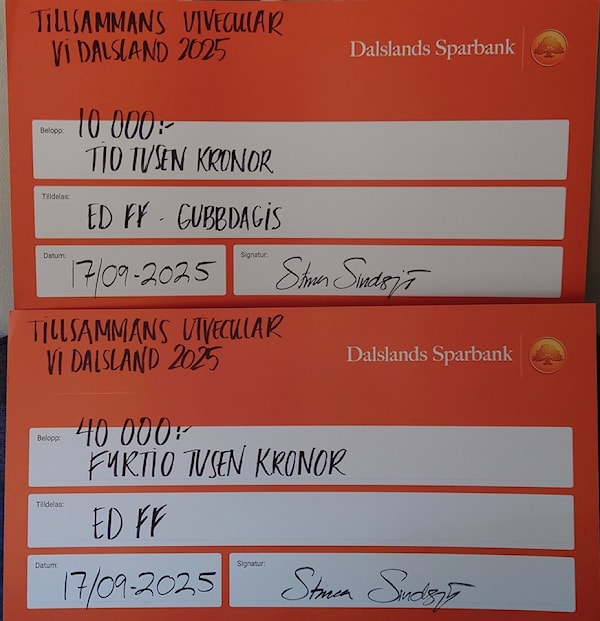 TILLSAMMANS UTVECKLAR
VI DALSLAND 2025
Dalslands Sparbank
Belopp: 10 000:-
TIO TUSEN KRONOR
Tilldelas:
ED FF - GUBBDAGIS
Datum:
17/09-2025
Signatur:
TILLSAMMANS UTVECKLAR
VI DALSLAND 2025
Dalslands Sparbank
Belopp: 40 000:-
FYRTIO TUSEN KRONOR
Tilldelas:
ED FF
Datum:
17/09-2025
Signatur: